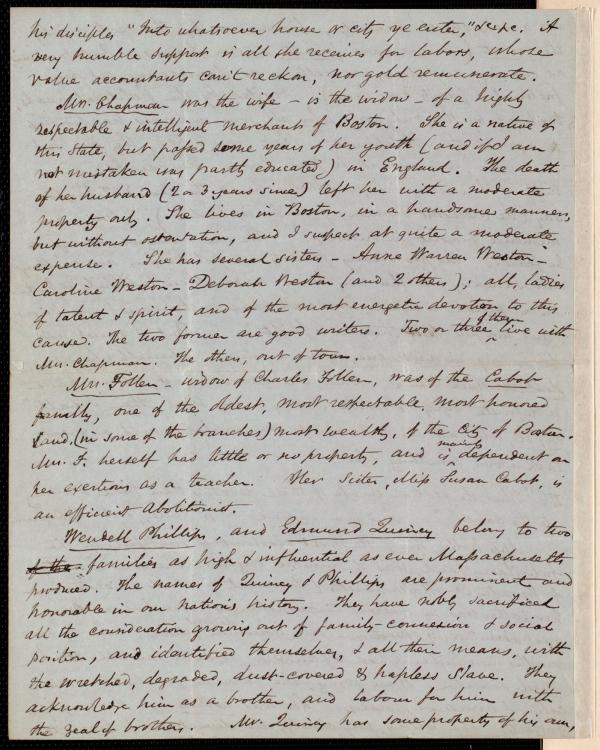 his disciples "Into whatsoever house or city ye enter," &c &c. A
very humble support is all she receives for labors, whose
value accountants can't reckon, nor gold remunerate.
Mrs. Chapman was the wife – is the widow – of a highly
respectable & intelligent merchant of Boston. She is a native of
this State, but passed some years of her youth (and if I am
not mistaken was partly educated) in England. The death
of her husband (2 or 3 years since) left her with a moderate
property only. She lives in Boston, in a handsome manner,
but without ostentation, and I suspect at quite a moderate
expense. She has several sisters – Anne Warren Weston –
Caroline Weston – Deborah Weston (and 2 others); all, ladies
of talent & spirit, and of the most energetic devotion to this
cause. The two former are good writers. Two or three of them live with
Mrs. Chapman. The others, out of town.
Mrs. Follen – widow of Charles Follen, was of the Cabot
family, one of the oldest, most respectable, most honored
and (in some of the branches) most wealthy, of the City of Boston.
Mrs. F. herself has little or no property, and is mainly dependent on
her exertions as a teacher. Her Sister, Miss Susan Cabot, is
an efficient Abolitionist.
Wendell Phillips, and Edmund Quincy belong to two
of the families as high & influential as ever Massachusetts
produced. The names of Quincy & Phillips are prominent and
honorable in our nation's history. They have nobly sacrificed
all the consideration growing out of family-connexion & social
position, and identified themselves, & all their means, with
the wretched, degraded, dust-covered & hapless Slave. They
acknowledge him as a brother, and labour for him with
the zeal of brothers. Mr. Quincy has some property of his own,